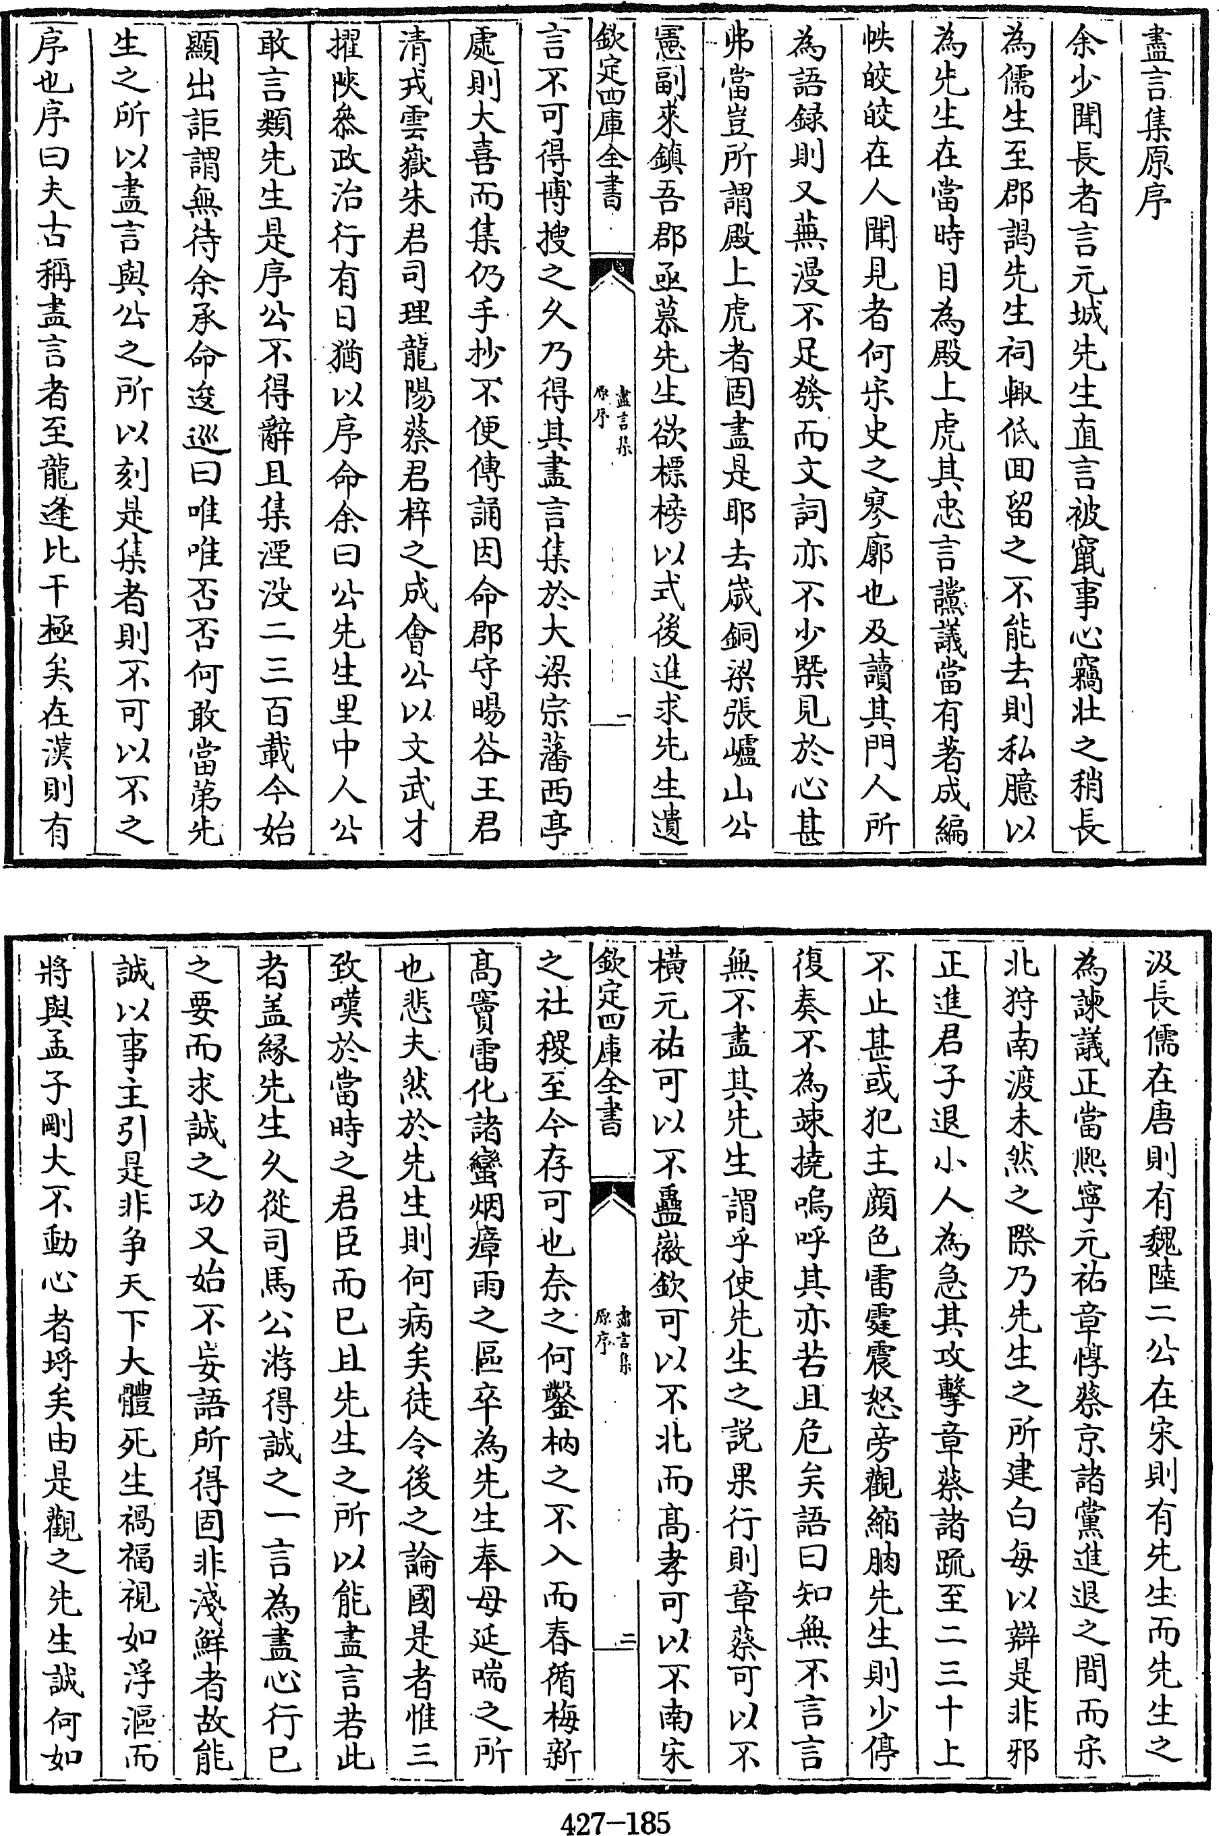 盡言集原序
余少聞長者言元城先生直言被竄事心竊壯之稍長
為儒生至郡謁先生祠輙低回留之不能去則私臆以
為先生在當時目為殿上虎其忠言讜議當有著成編
帙皎皎在人聞見者何宋史之寥廓也及讀其門人所
為語録則又蕪漫不足發而文詞亦不少槩見於心甚
弗當豈所謂殿上虎者固盡是耶去歲銅梁張崌山公
憲副來鎮吾郡亟慕先生欲標榜以式後進求先生遺
欽定四庫全書
盡言集
原序
一
言不可得博搜之久乃得其盡言集於大梁宗藩西亭
處則大喜而集仍手抄不便傳誦因命郡守暘谷王君
清戎雲嶽朱君司理龍陽蔡君梓之成會公以文武才
擢陜叅政治行有日猶以序命余曰公先生里中人公
敢言類先生是序公不得辭且集湮没二三百載今始
顯出詎謂無待余承命逡巡曰唯唯否否何敢當第先
生之所以盡言與公之所以刻是集者則不可以不之
序也序曰夫古稱盡言者至龍逢比干極矣在漢則有
汲長儒在唐則有魏陸二公在宋則有先生而先生之
為諫議正當熙寧元祐章惇蔡京諸黨進退之間而宋
北狩南渡未然之際乃先生之所建白每以辯是非邪
正進君子退小人為急其攻擊章蔡諸疏至二三十上
不止甚或犯主顔色雷霆震怒旁觀縮朒先生則少停
復奏不為竦撓嗚呼其亦若且危矣語曰知無不言言
無不盡其先生謂乎使先生之説果行則章蔡可以不
橫元祐可以不蠱徽欽可以不北而髙孝可以不南宋
欽定四庫全書
盡言集
原序
二
之社稷至今存可也奈之何鑿枘之不入而春循梅新
髙竇雷化諸蠻烟瘴雨之區卒為先生奉母延喘之所
也悲夫然於先生則何病矣徒令後之論國是者惟三
致嘆於當時之君臣而已且先生之所以能盡言若此
者盖緣先生久從司馬公游得誠之一言為盡心行已
之要而求誠之功又始不妄語所得固非淺鮮者故能
誠以事主引是非争天下大體死生禍福視如浮漚而
將與孟子剛大不動心者埓矣由是觀之先生誠何如
427-185